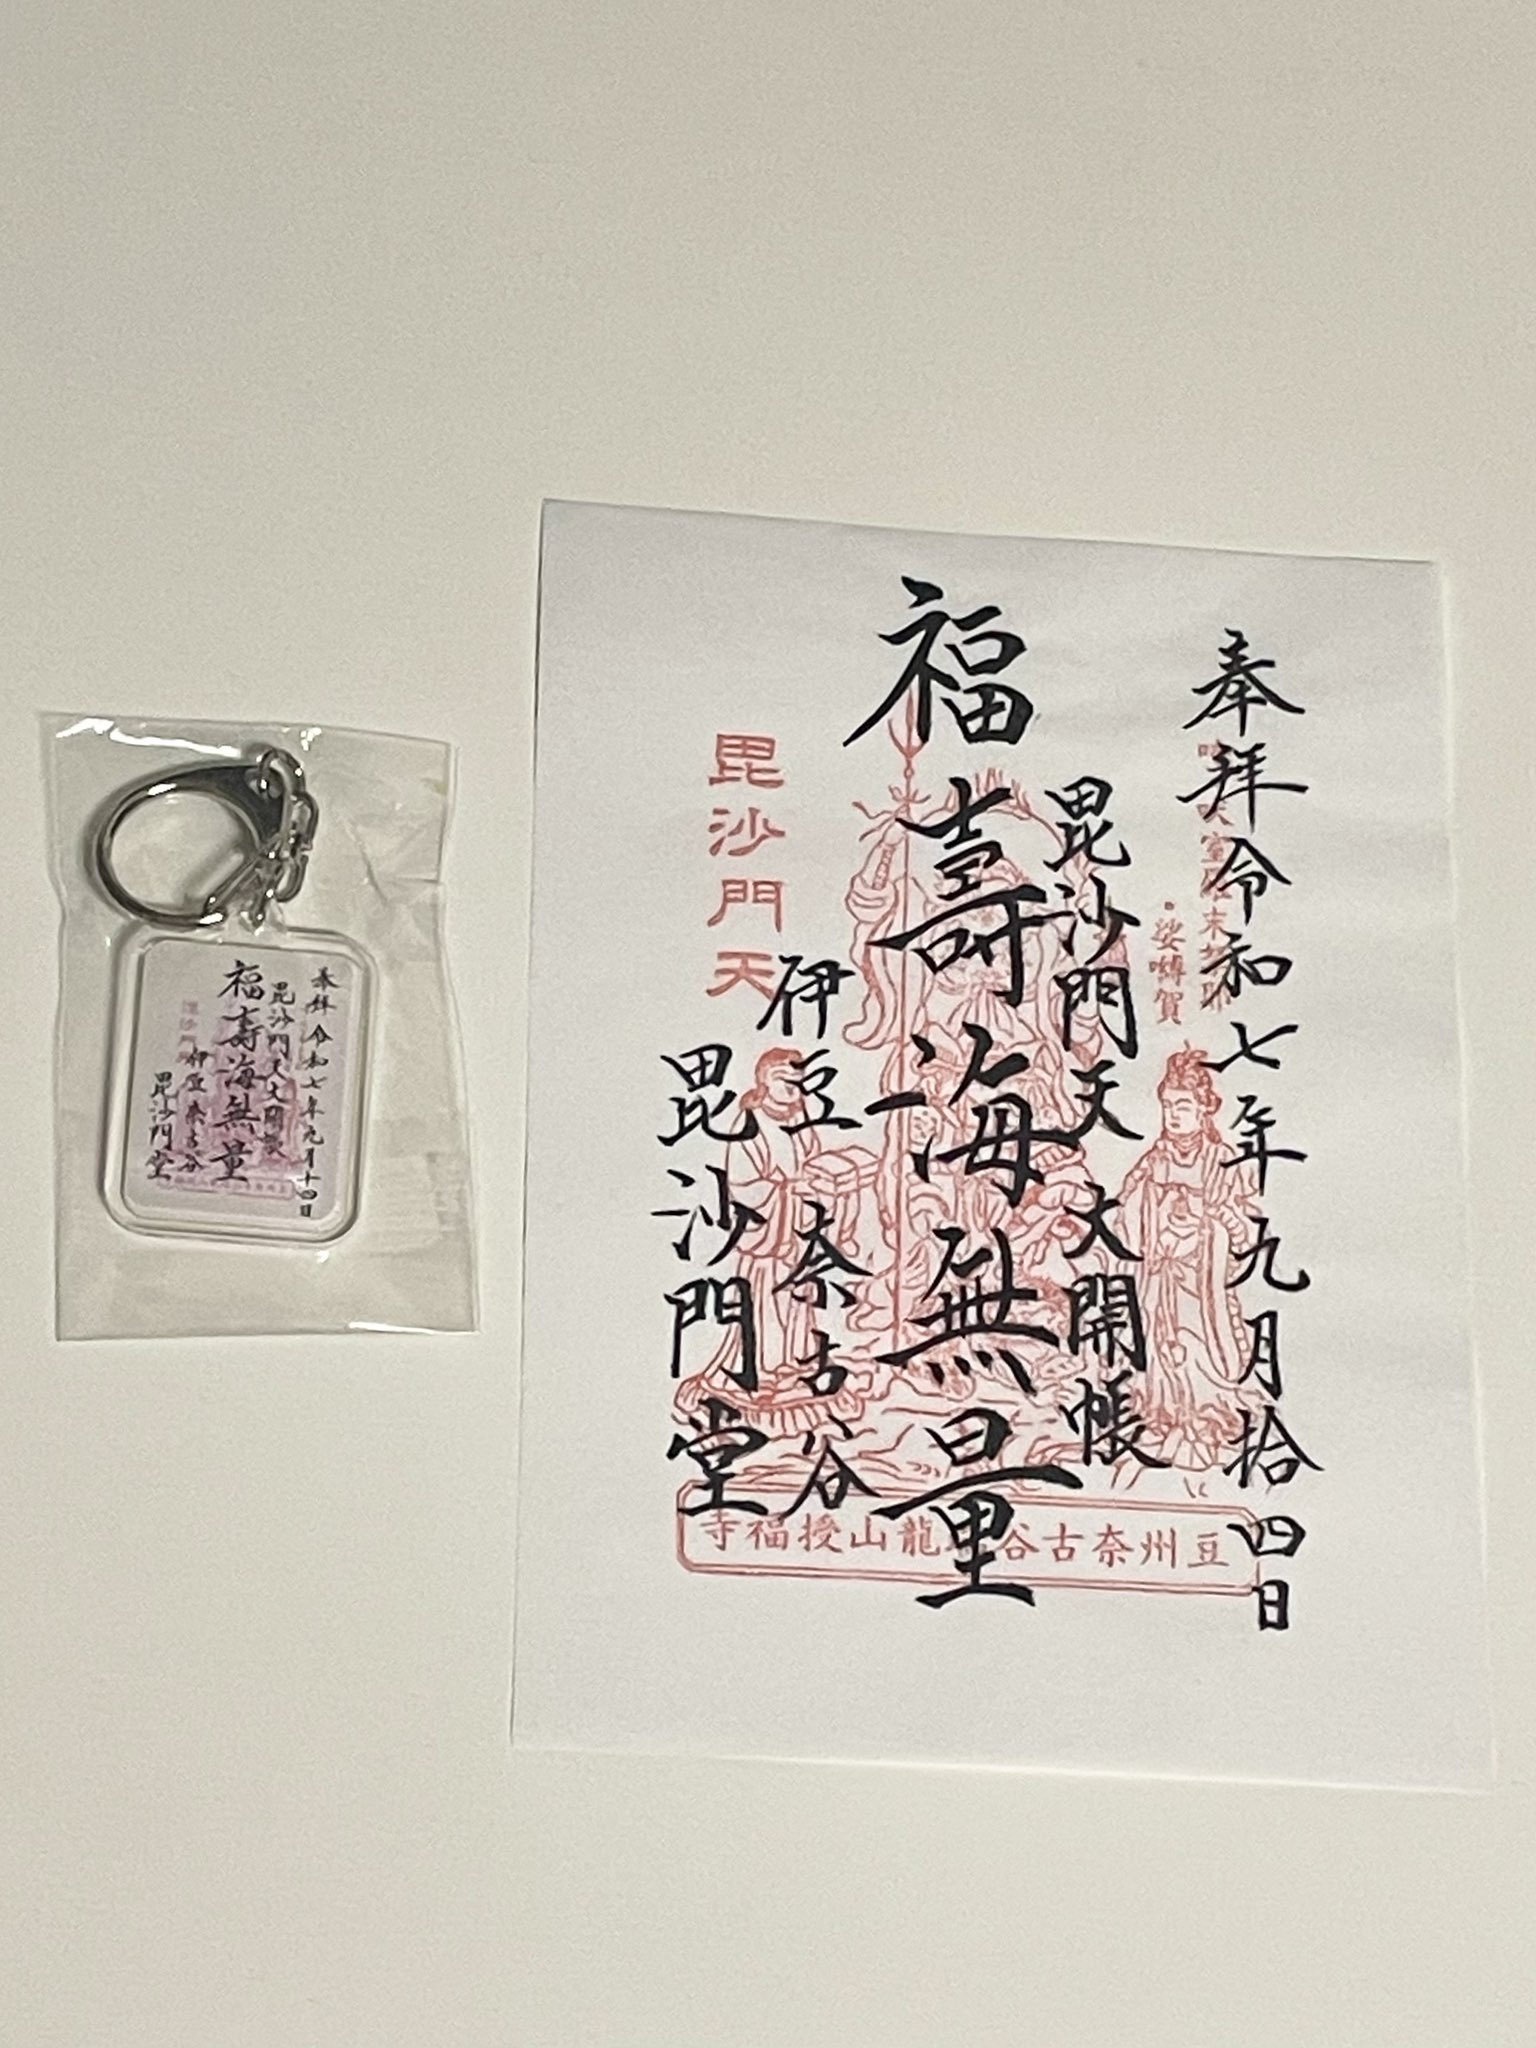 奉拝令和七年九月拾四日
毘沙門天大開帳
福壽海無量
伊豆奈古谷
毘沙門堂
毘沙門天
娑嚩賀
豆州奈古谷
龍山授福寺
奉拝令和七年九月十四日
毘沙門天大開帳
福壽海無量
伊豆奈古谷
毘沙門堂